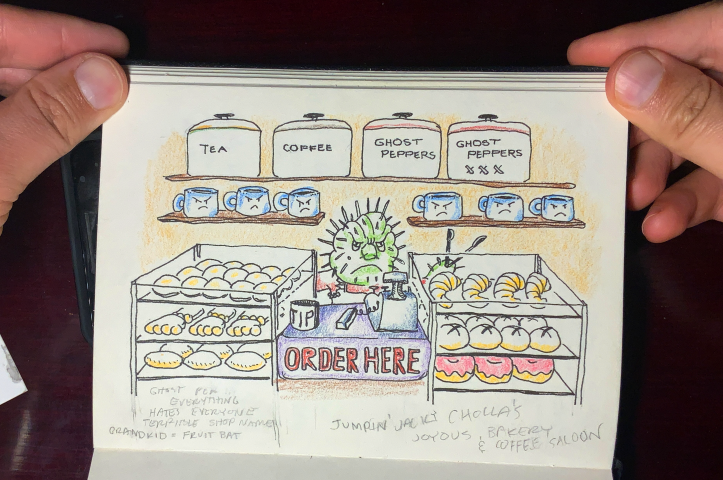 TEA
COFFEE
GHOST
PEPPERS
GHOST
PEPPERS
XXX
TIP
ORDER HERE
GHOST PEP...
EVERYTHING
HATES EVERYONE
TERRIBLE SHOP NAME
GRANDKID = FRUIT BAT
JUMPIN' JACK CHOLLA'S
JOYOUS BAKERY
& COFFEE SALOON